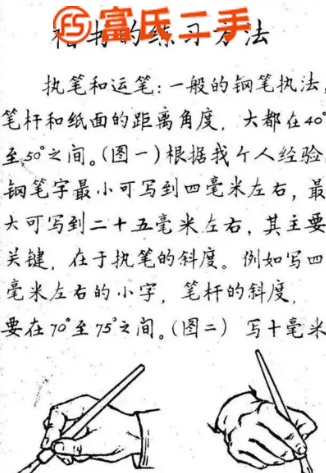 富氏二手
楷书的练习方法
执笔和运笔：一般的钢笔执法，
笔杆和纸面的距离角度，大都在40°
至50°之间。（图一）根据我个人经验，
钢笔字最小可写到四毫米左右，最
大可写到二十五毫米左右，其主要
关键，在于执笔的斜度。例如写四
毫米左右的小字，笔杆的斜度，
要在70°至75°之间。（图二）写十毫米